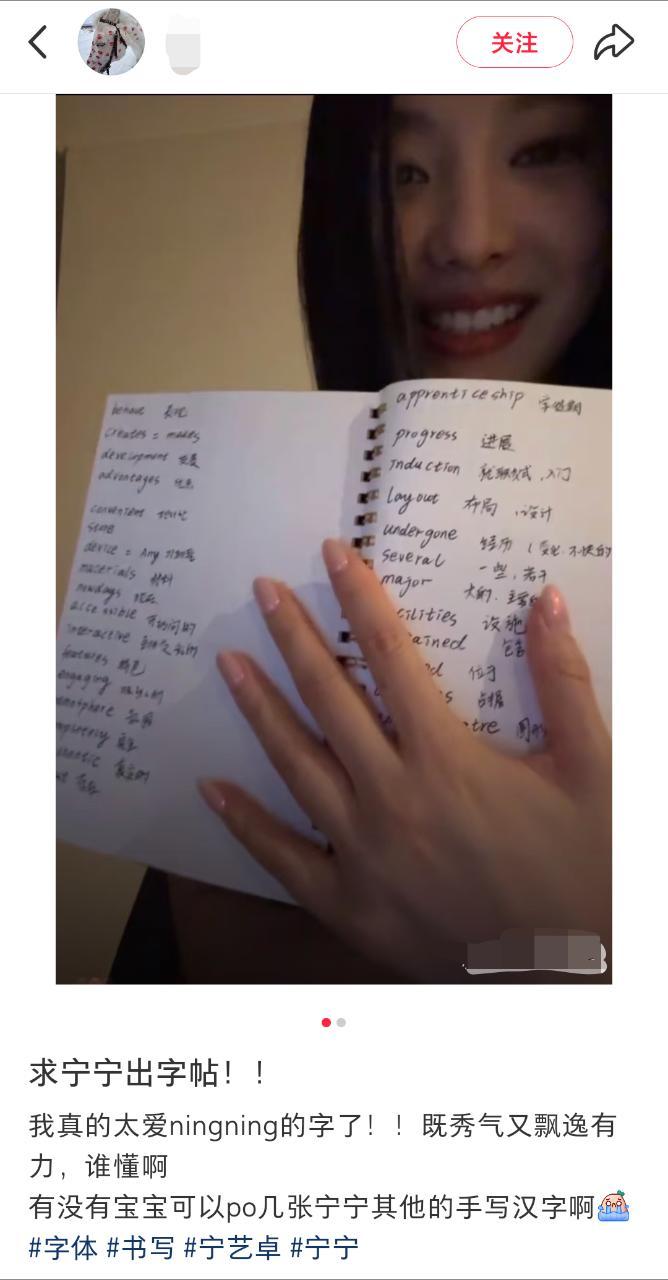 关注
behave 表现
creates = makes
development 发展
advantages 优点
convenient
state
device = Any
materials 材料
nowdays 现在
accessible 可访问的
interactive
features 特色
engaging
apprenticeship 学徒期
progress 进展
induction 就职仪式，入门
layout 布局，设计
undergone 经历（变化.不快的
several 一些，若干
major 大的.主要的
cilities 设施
ained 包含
d 位于
s 占据
tre 圆形
求宁宁出字帖！！
我真的太爱ningning的字了！！既秀气又飘逸有
力，谁懂啊
有没有宝宝可以po几张宁宁其他的手写汉字啊
#字体 #书写 #宁艺卓 #宁宁